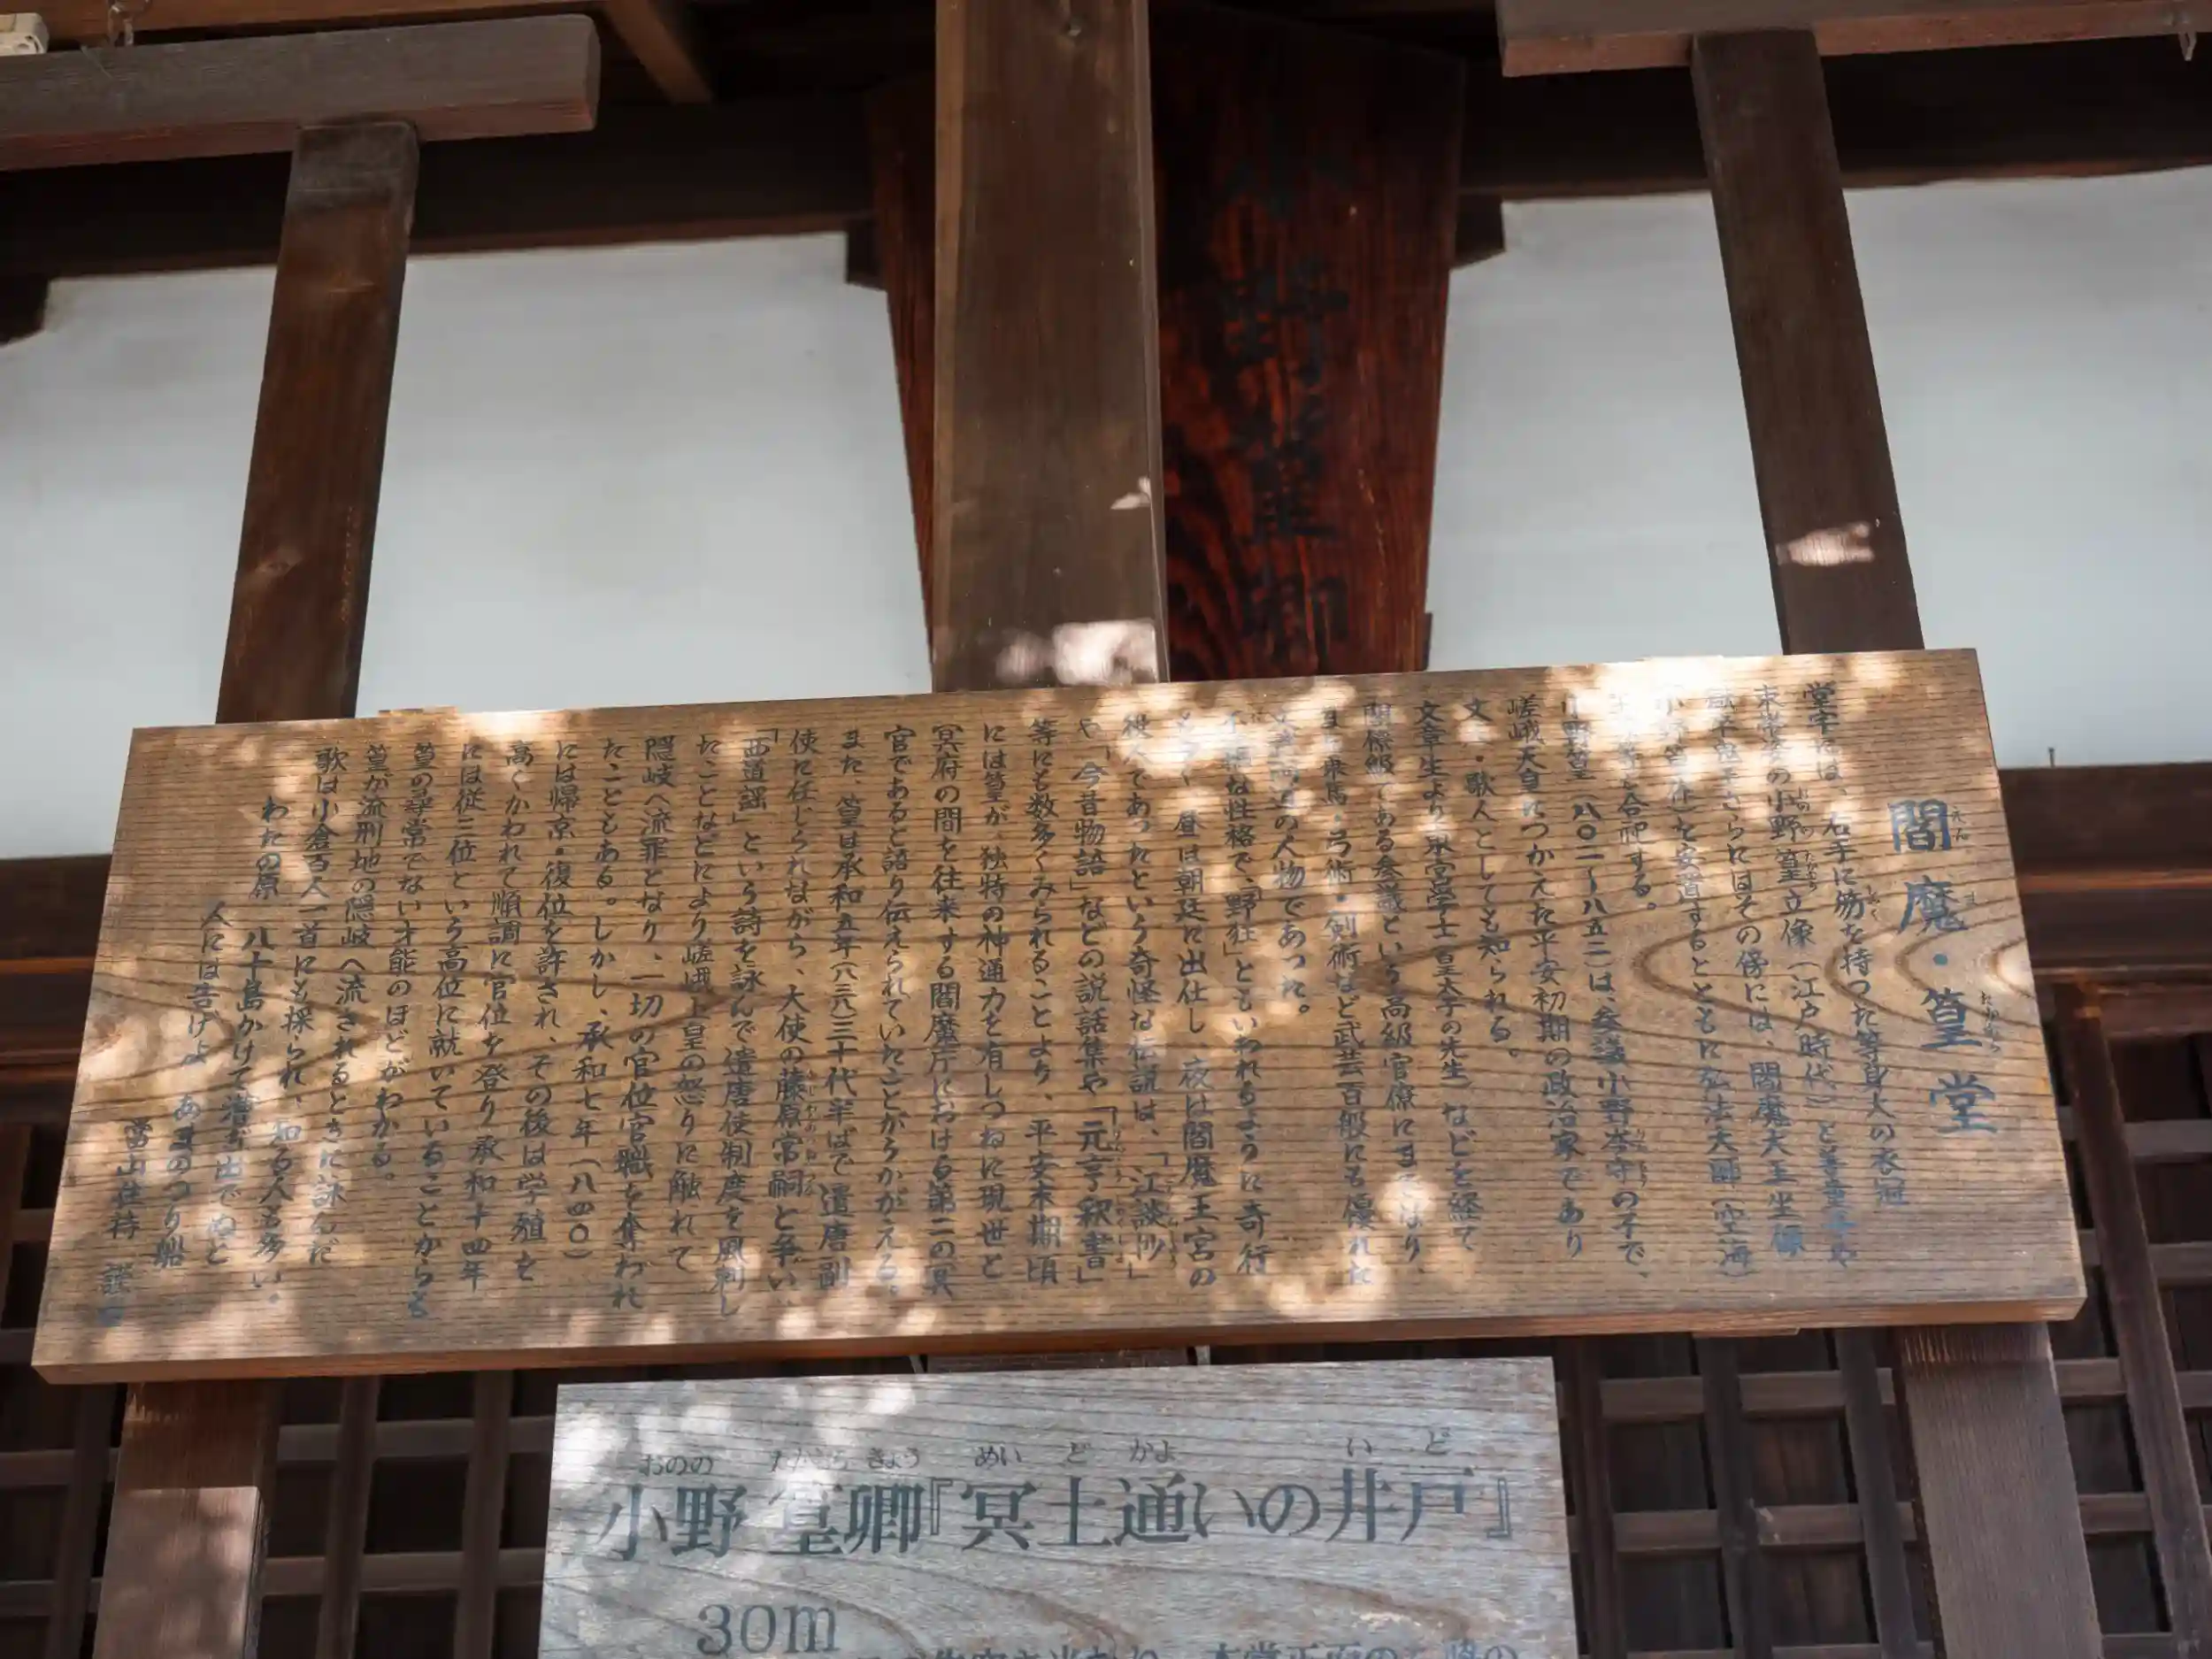 野篁卿
閻魔・篁堂
えん ま たかむら
堂宇には、右手に笏を持った等身大の衣冠
束帯姿の小野篁立像(江戸時代)と善童子や
獄卒鬼王さらにはその傍には、閻魔大王坐像
小野篁作)を安置するとともに弘法大師(空海)
等を合祀する。
小野篁(八〇一〜八五二)は、参議小野岑守の子で、
嵯峨天皇につかえた平安初期の政治家であり
文・歌人としても知られる。
文章生より東宮学士(皇太子の先生)などを経て
閣僚級である参議という高級官僚にまでなり、
また乗馬・弓術・剣術など武芸百般にも優れた
文武両道の人物であった。
不羈な性格で、「野狂」ともいわれるように奇行
多く、昼は朝廷に出仕し、夜は閻魔王宮の
役人であったという奇怪な伝説は、「江談抄」
や「今昔物語」などの説話集や「元亨釈書」
等にも数多くみられることより、平安末期頃
には篁が、独特の神通力を有しつねに現世と
冥府の間を往来する閻魔庁における第二の冥
官であると語り伝えられていたことがうかがえる。
また、篁は承和五年(八三八)三十代半ばで遣唐副
使に任じられながら、大使の藤原常嗣と争い、
「西道謡」という詩を詠んで遣唐使制度を風刺し
たことなどにより嵯峨上皇の怒りに触れて
隠岐へ流罪となり、一切の官位官職を奪われ
たこともある。しかし、承和七年(八四〇)
には帰京・復位を許され、その後は学殖を
高くかわれて順調に官位を登り承和十四年
には従三位という高位に就いていることからも
篁の尋常でない才能のほどがわかる。
篁が流刑地の隠岐へ流されるときに詠んだ
歌は小倉百人一首にも採られ、知る人も多い。
わたの原 八十島かけて漕ぎ出でぬと
人には告げよ あまのつり船
当山住持 謹白
おのの たかむら きょう めい ど かよ い ど
小野 篁卿『冥土通いの井戸』
30m